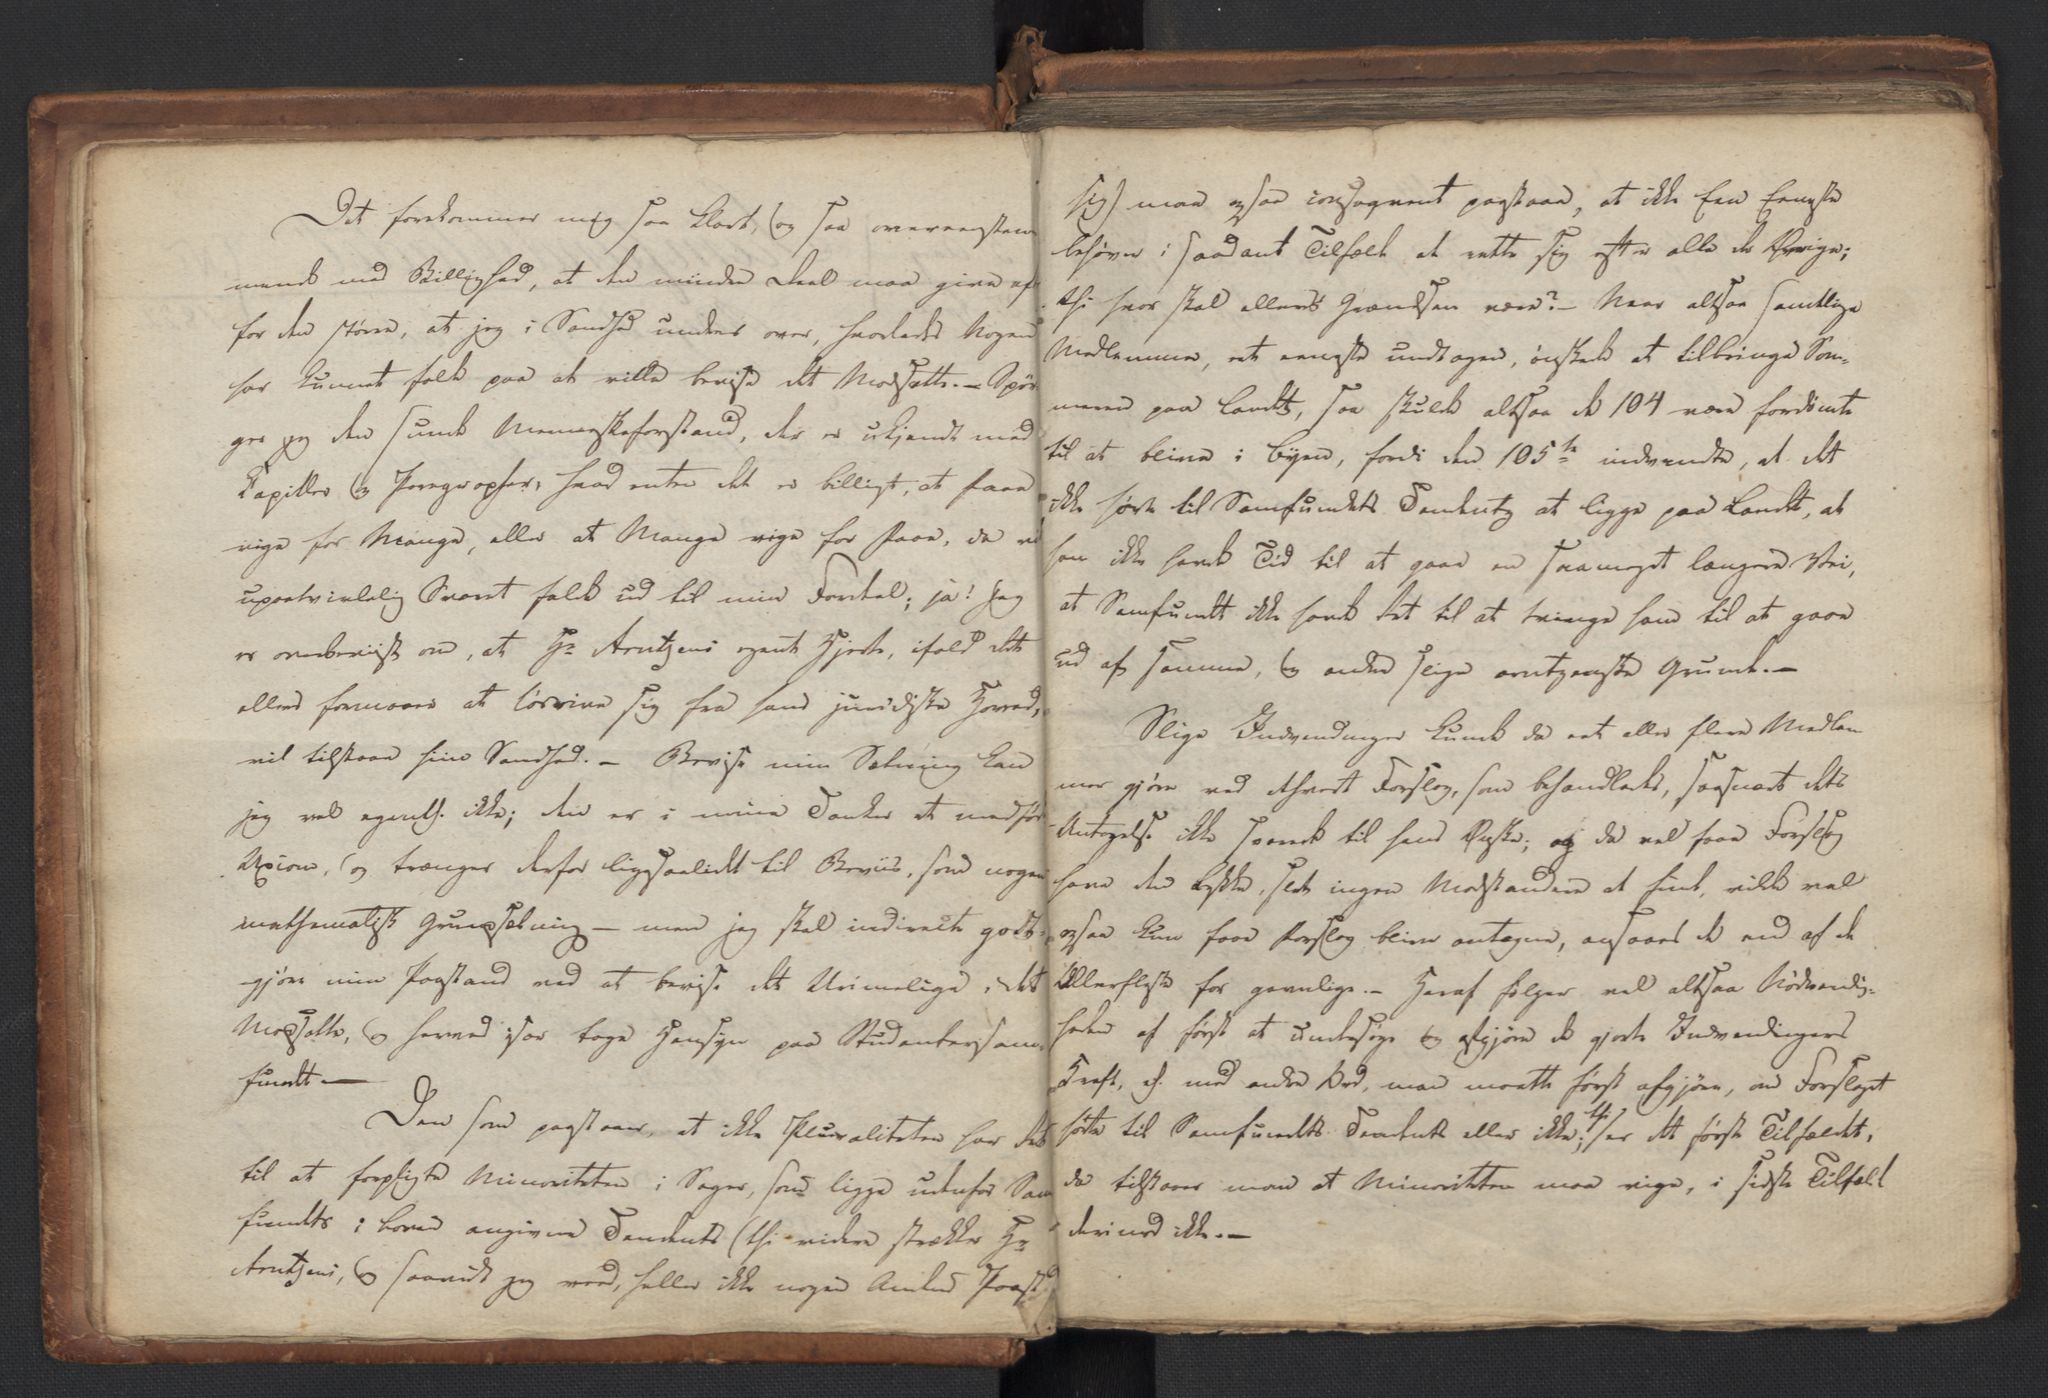 Det forekommer mig saa klart, og saa overeenstem
mende med Billighed, at den mindre Deel maa give af
for den større, at jeg i Sandhed undres over, hvorledes Nogen
har kunnet falde paa at ville bevise det Modsatte. – Spør
ger jeg den sunde Menneskeforstand, der er ukjendt med
Capitler og Paragrapher, hvad enten det er billigt, at Faae
vige for Mange, eller at Mange vige for Faae, da vil
upaatvivlelig Svaret falde ud til min Fordeel; ja! jeg
er overbeviist om, at Hr Arntzens eget Hjerte, ifald det
ellers formaaer at losrive sig fra hans juridiske Hoved,
vil tilstaae sine Sandhed. – Bevise min Sætning kan
jeg vel egentl. ikke; den er i mine Tanker et medfør
Axiom, og trænger derfor ligesaalidt til Beviis, som nogen
mathematisk Grundsætning – men jeg skal indirecte godt-
gjøre min Paastand ved at bevise det Urimelige i det
Modsatte, og herved især tage Hensyn paa Studentersam-
fundet. –
Den som paastaaer, at ikke Pluraliteten har Ret
til at forpligte Minoriteten i Sager, som ligge udenfor Sam
fundets i Loven angivne Tendents (thi videre strækker Hr
Arntzens, og saavidt jeg veed, heller ikke nogen Andens Paast
sig) maa ogsaa conseqvent paastaae, at ikke Een Eeneste
behøver i saadant Tilfælde at rette sig efter alle de Øvrige;
thi hvor skal ellers Grændsen være? – Naar altsaa samtlige
Medlemmer, eet eeneste undtagen, ønskede at tilbringe Som-
meren paa Landet, saa skulde altsaa de 104 være fordømte
til at blive i Byen, fordi den 105te indvendte, at det
ikke hørte til Samfundets Tendents at ligge paa Landet, at
han ikke havde Tid til at gaae en saameget længere Vei,
at Samfundet ikke havde Ret til at tvinge ham til at gaae
ud af samme, og andre slige arntzenske Grunde. –
Slige Indvendinger kunde da eet eller flere Medlem
mer gjøre ved ethvert Forslag, som behandledes, saasnart dets
Antagelse ikke svarede til hans Ønske; og da vel faae Forslag
have den Lykke, slet ingen Modstandere at finde, vilde vel
ogsaa kun faae Forslag blive antagne, ansaaes de end af de
Allerfleste for gavnlige. – Heraf følger vel altsaa Nødvendig-
heden af først at undersøge og afgjøre de gjorte Indvendingers
Kraft, ɔ: med andre Ord, man maatte først afgjøre, om Forslaget
hørte til Samfundets Tendents eller ikke; thi er det første Tilfældet,
da tilstaaer man at Minoriteten maa vige, i sidste Tilfælde
derimod ikke. –